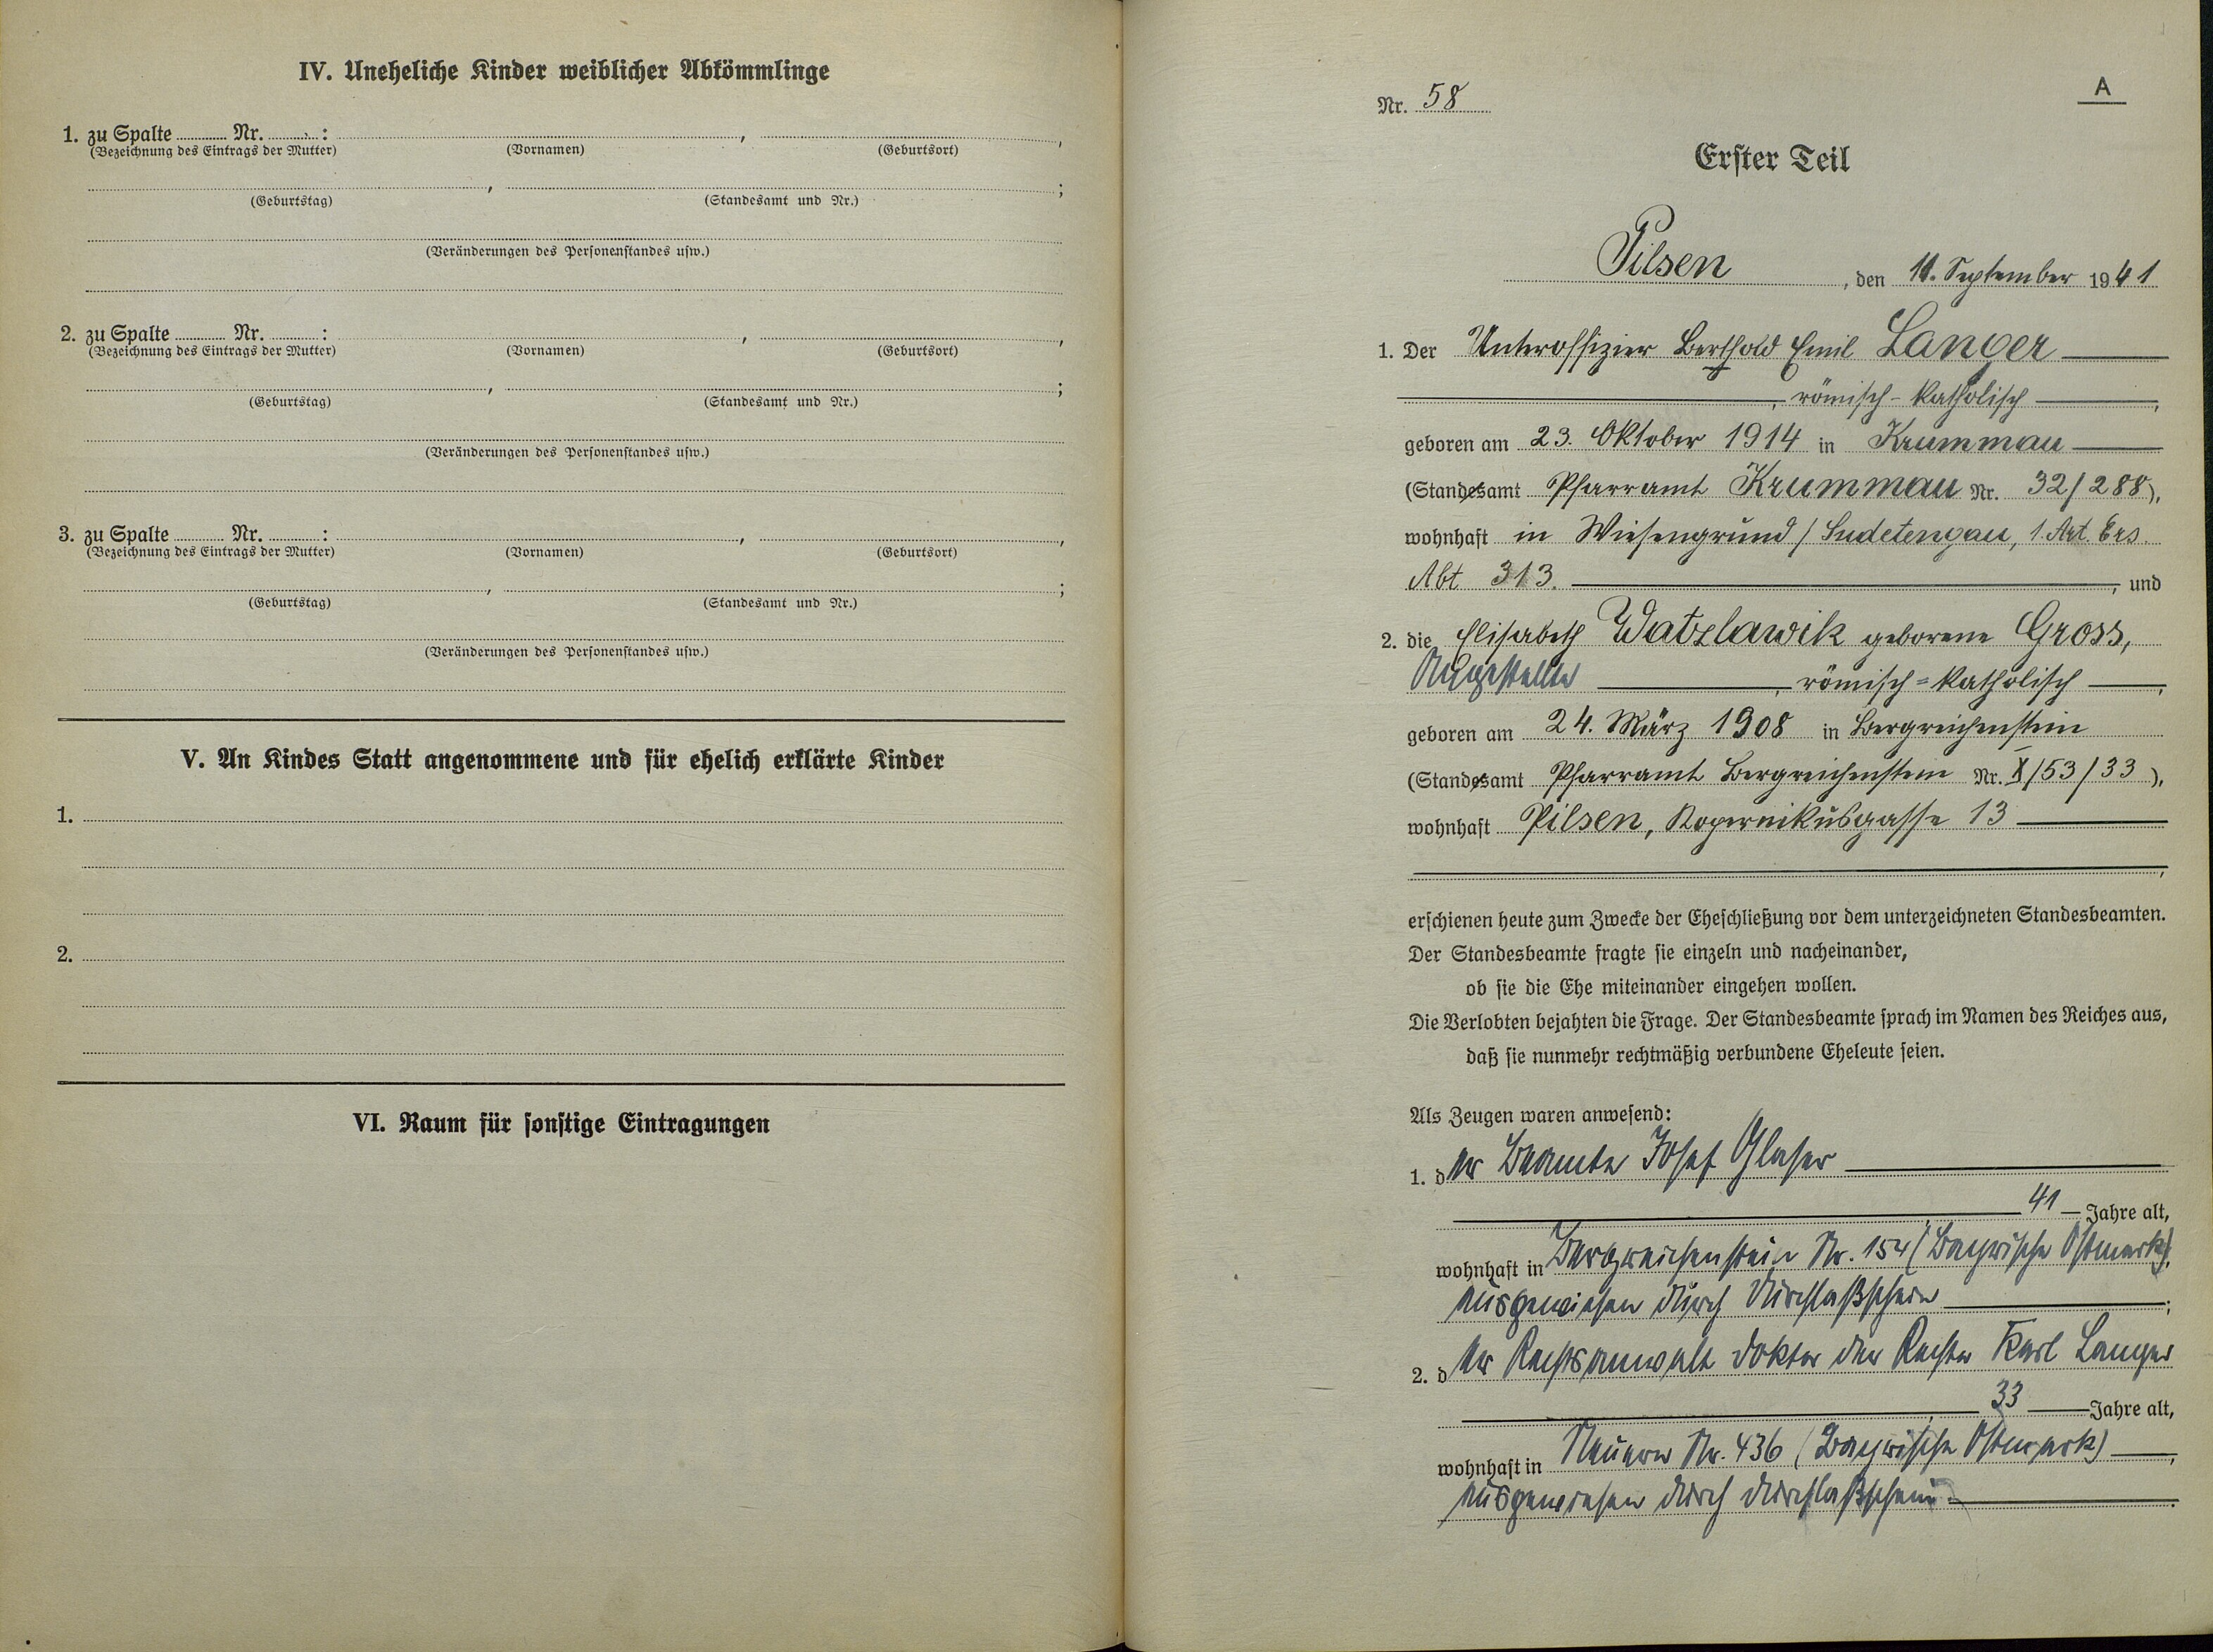 IV. Uneheliche Kinder weiblicher Abkömmlinge
1. zu Spalte ......... Nr. ......... : , ,
(Bezeichnung des Eintrags der Mutter) (Vornamen) (Geburtsort)
, ;
(Geburtstag) (Standesamt und Nr.)
(Veränderungen des Personenstandes usw.)
2. zu Spalte ......... Nr. ......... : , ,
(Bezeichnung des Eintrags der Mutter) (Vornamen) (Geburtsort)
, ;
(Geburtstag) (Standesamt und Nr.)
(Veränderungen des Personenstandes usw.)
3. zu Spalte ......... Nr. ......... : , ,
(Bezeichnung des Eintrags der Mutter) (Vornamen) (Geburtsort)
, ;
(Geburtstag) (Standesamt und Nr.)
(Veränderungen des Personenstandes usw.)
V. An Kindes Statt angenommene und für ehelich erklärte Kinder
1.
2.
VI. Raum für sonstige Eintragungen
A
Nr. 58
Erster Teil
Pilsen, den 11. September 1941
1. Der Unteroffizier Berthold Emil Langer
, römisch-katholisch ,
geboren am 23. Oktober 1914 in Krummau
(Standesamt Pfarramt Krummau Nr. 32/288),
wohnhaft in Wiesengrund / Sudetengau, 1. Art. Ers.
Abt 313. , und
2. die Elisabeth Watzlawik geborene Gross,
Angestellte , römisch=katholisch ,
geboren am 24. März 1908 in Bergreichenstein
(Standesamt Pfarramt Bergreichenstein Nr. X/53/33),
wohnhaft Pilsen, Kopernikusgasse 13
,
erschienen heute zum Zwecke der Eheschließung vor dem unterzeichneten Standesbeamten.
Der Standesbeamte fragte sie einzeln und nacheinander,
ob sie die Ehe miteinander eingehen wollen.
Die Verlobten bejahten die Frage. Der Standesbeamte sprach im Namen des Reiches aus,
daß sie nunmehr rechtmäßig verbundene Eheleute seien.
Als Zeugen waren anwesend:
1. der Beamte Josef Glaser
, 41 Jahre alt,
wohnhaft in Bergreichenstein Nr. 154 (Bayrische Ostmark),
ausgewiesen durch Durchlaßschein ;
2. der Rechtsanwalt Doktor der Rechte Karl Langer
, 33 Jahre alt,
wohnhaft in Neuern Nr. 436 (Bayrische Ostmark) ,
ausgewiesen durch Durchlaßschein.